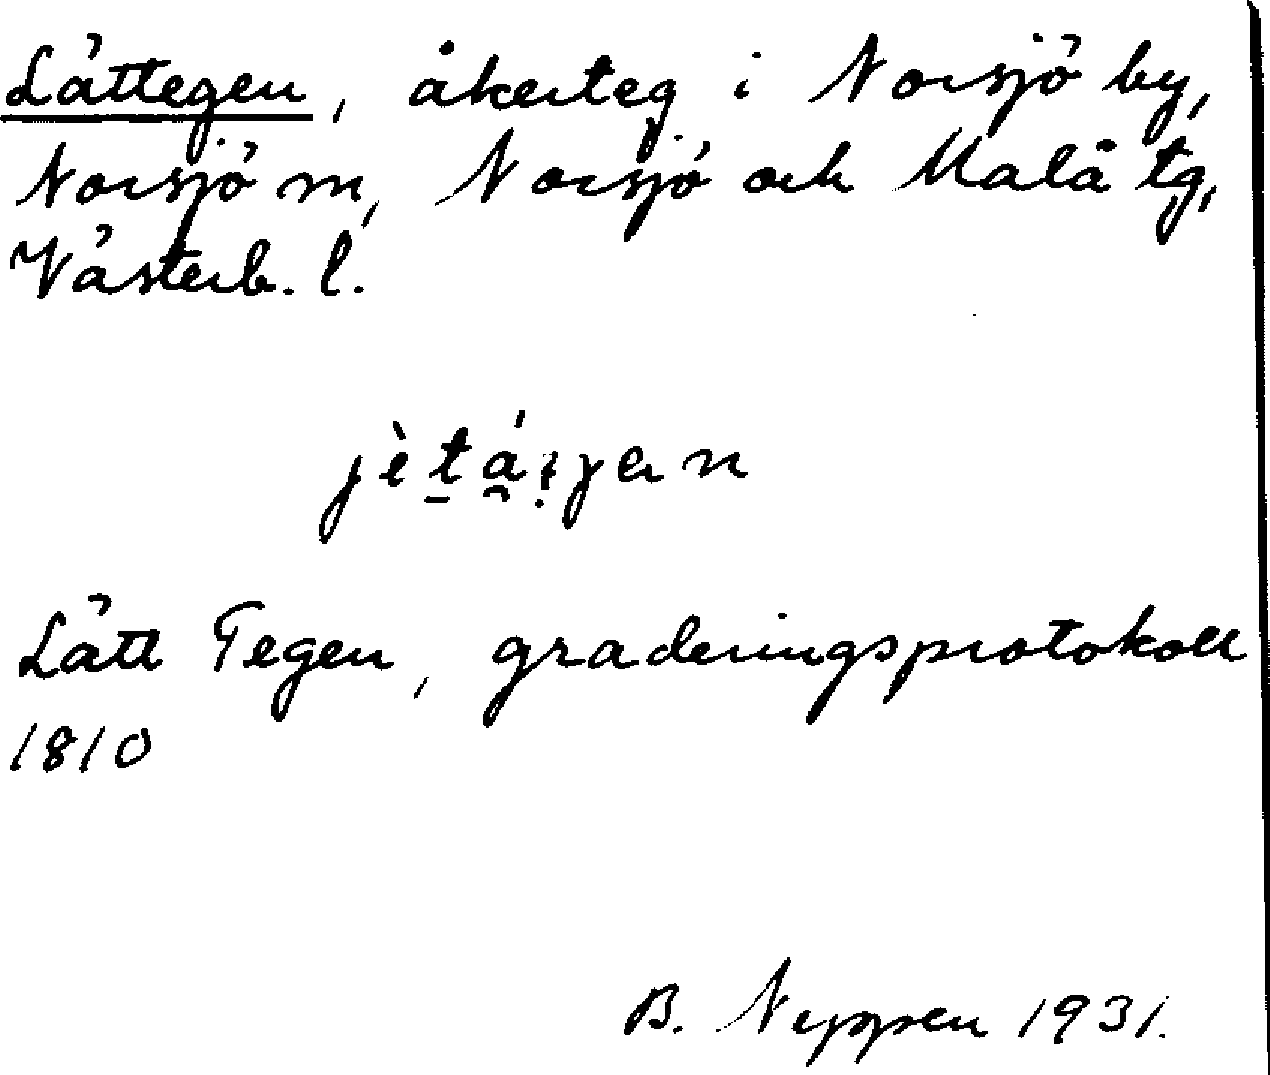 Lättegen, åkerteg i Norsjö by,
Norsjö sn, Norsjö och Malå tg,
Västerb. l.
Lätt Tegen, graderingsprotokoll
1810
B. 1931.